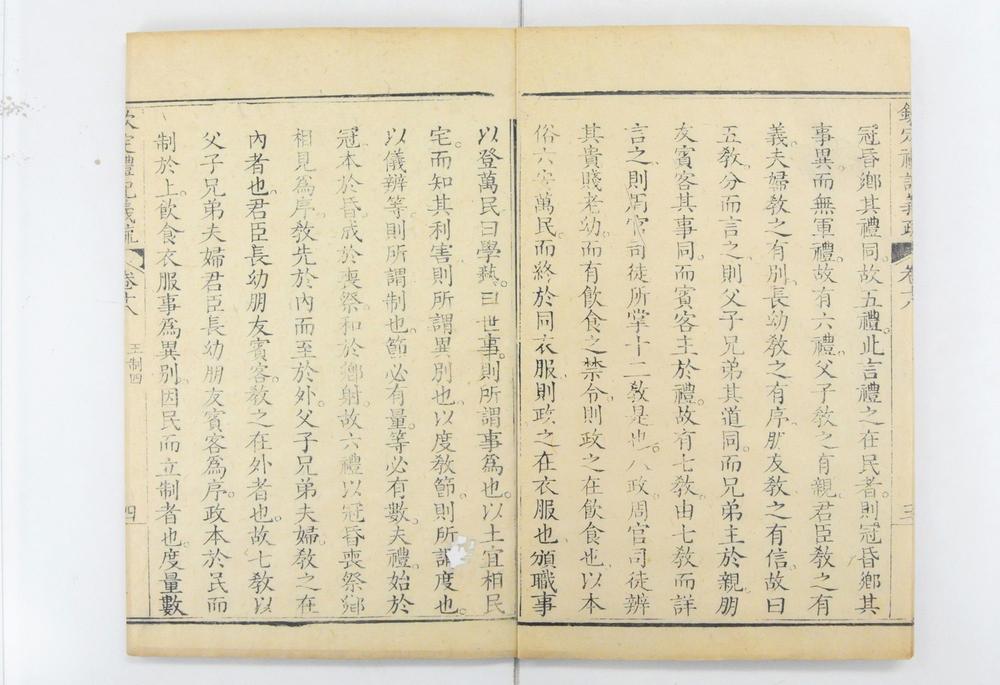 欽定禮記義疏 卷十八 三
冠昏鄉其禮同。故五禮。此言禮之在民者。則冠昏鄉其
事異。而無軍禮。故有六禮。父子敎之有親。君臣敎之有
義。夫婦敎之有別。長幼敎之有序。朋友敎之有信。故曰
五敎。分而言之。則父子兄弟其道同。而兄弟主於親。朋
友賓客其事同。而賓客主於禮。故有七敎。由七敎而詳
言之。則周官司徒所掌十二敎是也。八政。周官司徒辨
其貴賤老幼。而有飮食之禁令。則政之在飮食也。以本
俗六安萬民。而終於同衣服。則政之在衣服也。頒職事
以登萬民。曰學藝。曰世事。則所謂事爲也。以土宜相民
宅。而知其利害。則所謂異別也。以度敎節。則所謂度也。
以儀辨等。則所謂制也。節必有量。等必有數。夫禮。始於
冠。本於昏。成於喪祭。和於鄉射。故六禮以冠昏喪祭鄉
相見爲序。敎先於內而至於外。父子兄弟夫婦。敎之在
內者也。君臣長幼朋友賓客。敎之在外者也。故七敎以
父子兄弟夫婦君臣長幼朋友賓客爲序。政本於民而
制於上。飮食衣服事爲異別。因民而立制者也。度量數
欽定禮記義疏 卷十八 王制四 四